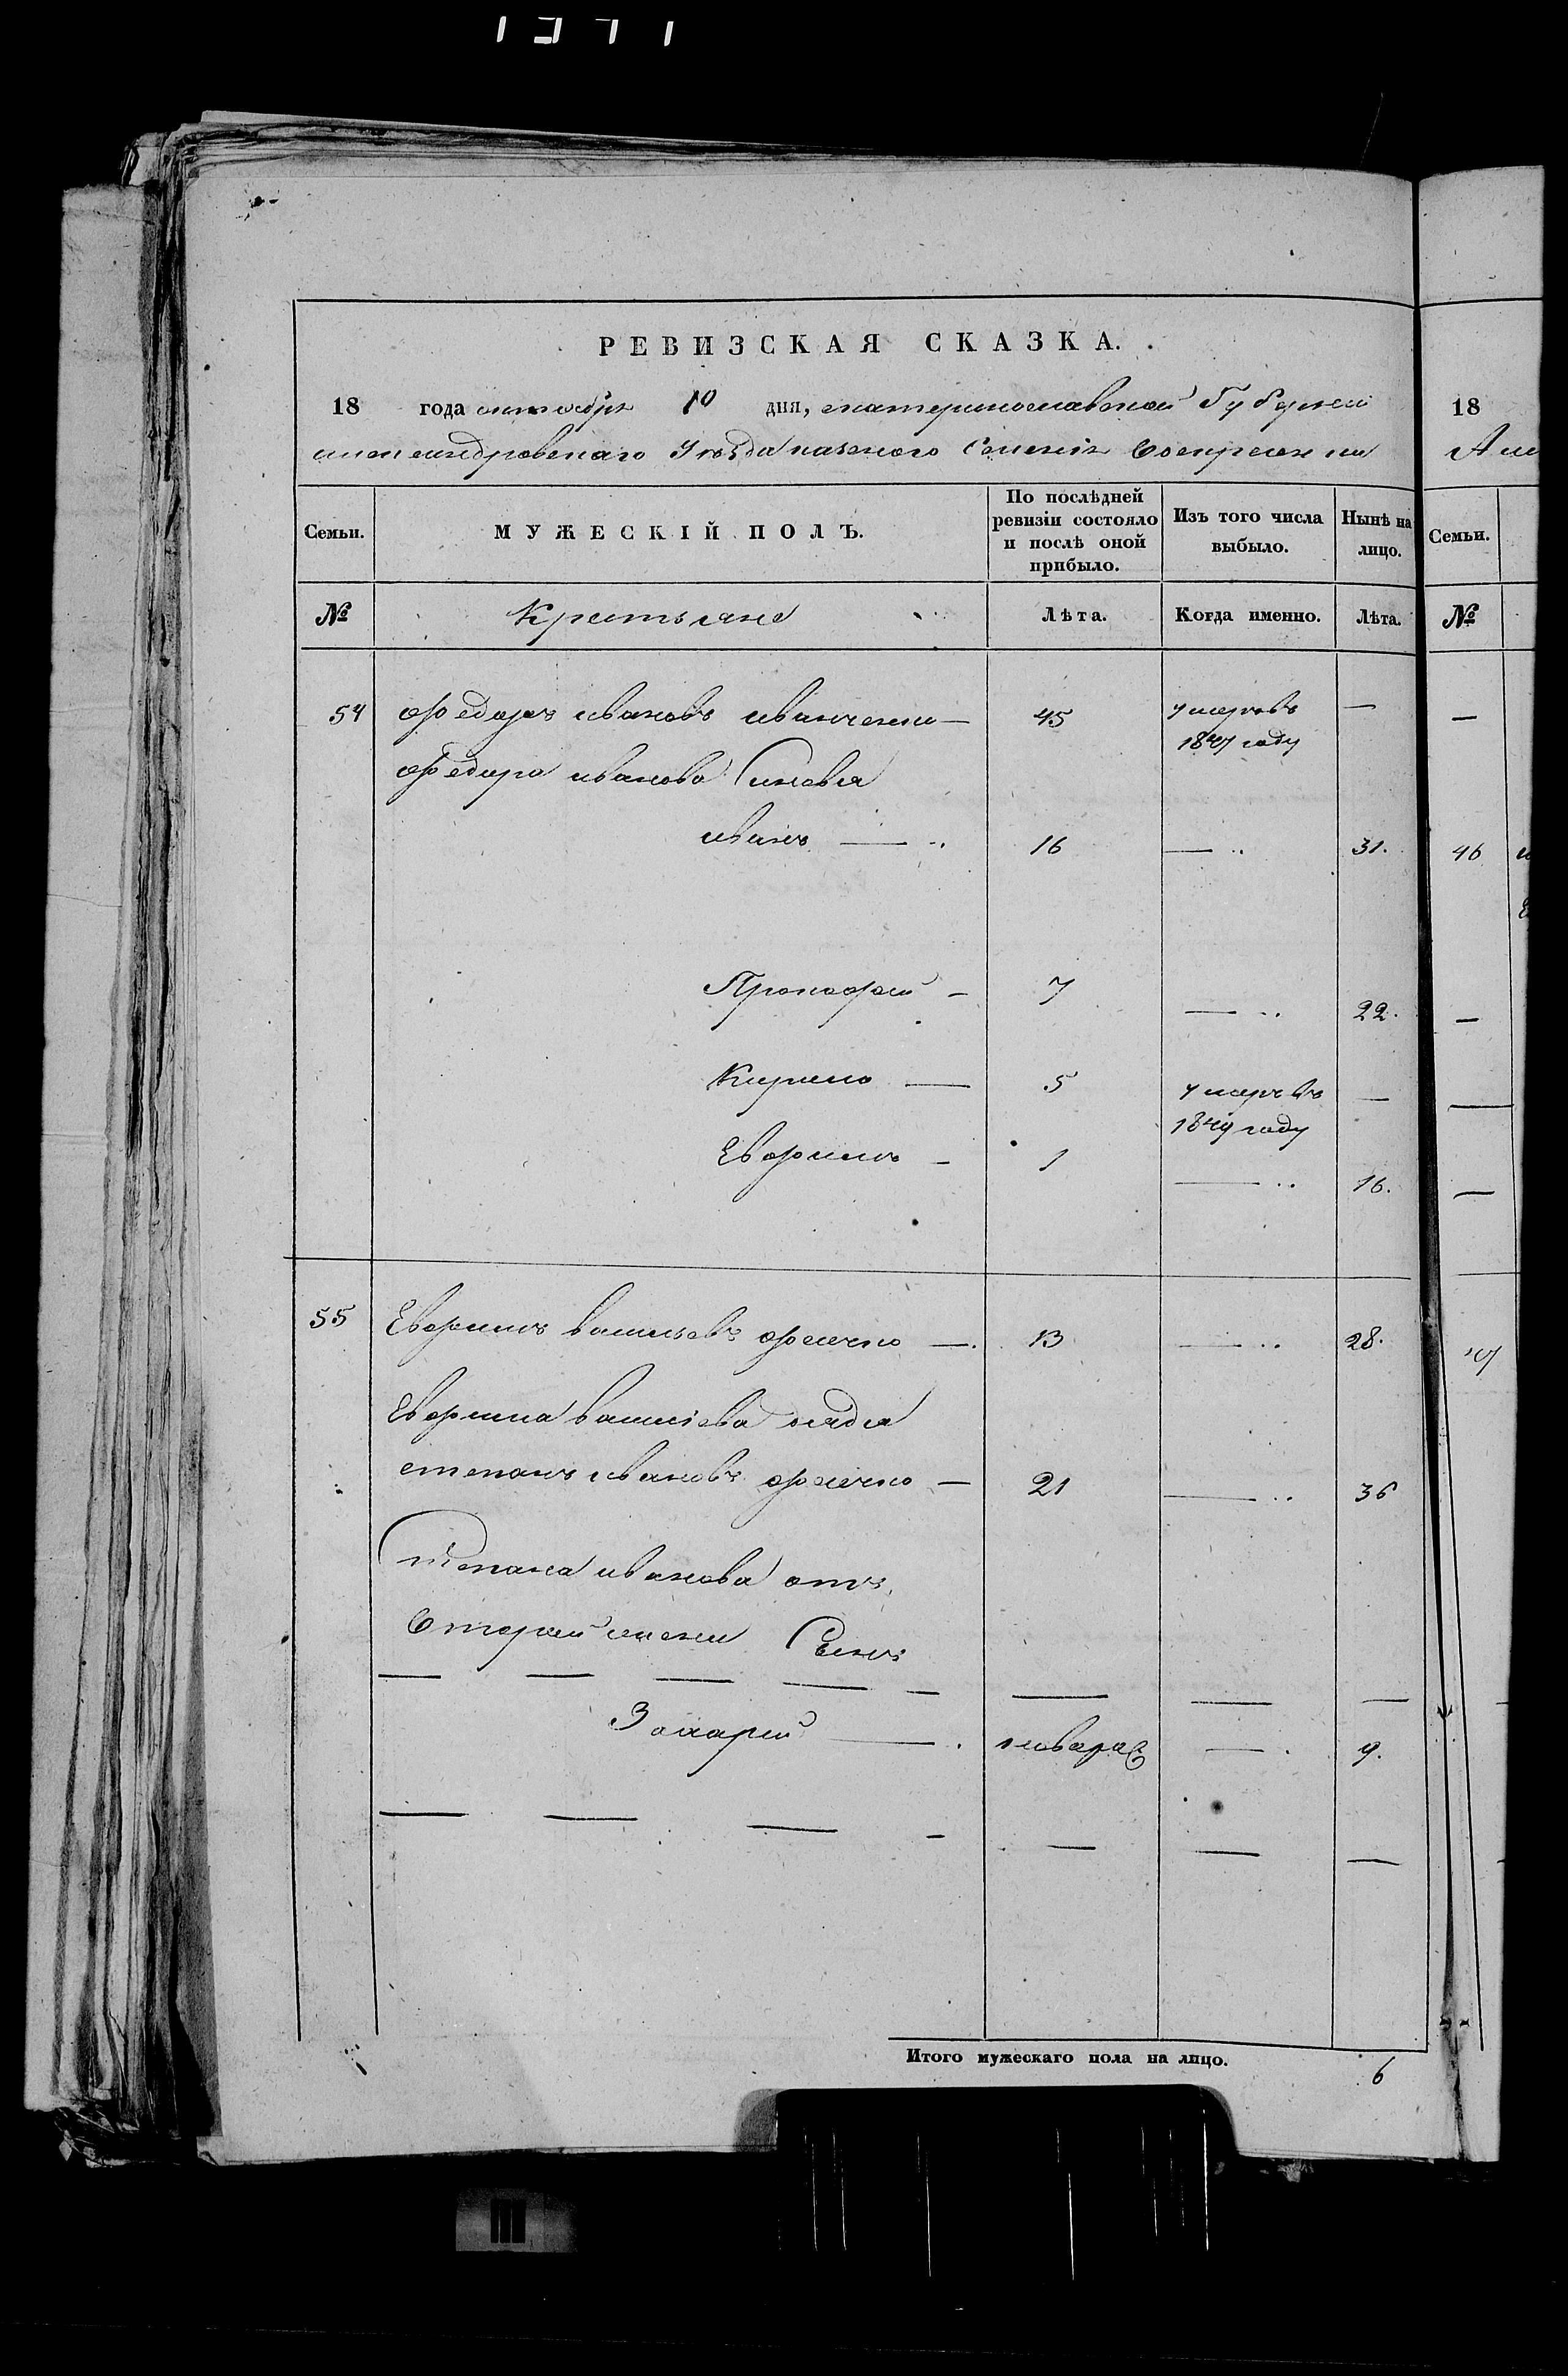 РЕВИЗСКАЯ СКАЗКА.
18 года октября 10 дня, екатеринославской Губернии
александровскаго Уѣзда казеного Селенія Воскресенки
Семьи. МУЖЕСКІЙ ПОЛЪ. По послѣдней ревизіи состояло и послѣ оной прибыло. Изъ того числа выбыло. Нынѣ на лицо.
№ Крестьяне Лѣта. Когда именно. Лѣта.
54 Федоръ ивановъ иванченко — 45 умеръ въ —
1847 году
Федора иванова Синовья
иванъ — 16 — 31.
Прокофей — 7 — 22.
Кирило — 5 умеръ въ —
1849 году
Евфимъ — 1 — 16.
55 Евфимъ васильевъ — 13 — 28.
Евфима васильева дядя
степанъ ивановъ — 21 — 36
Степана иванова отъ
второй жены Сынъ
— — — — — — — —
Захарий — — 9.
— — — — — — —
Итого мужескаго пола на лицо. 6
18
Семьи.
№
—
46
—
—
—